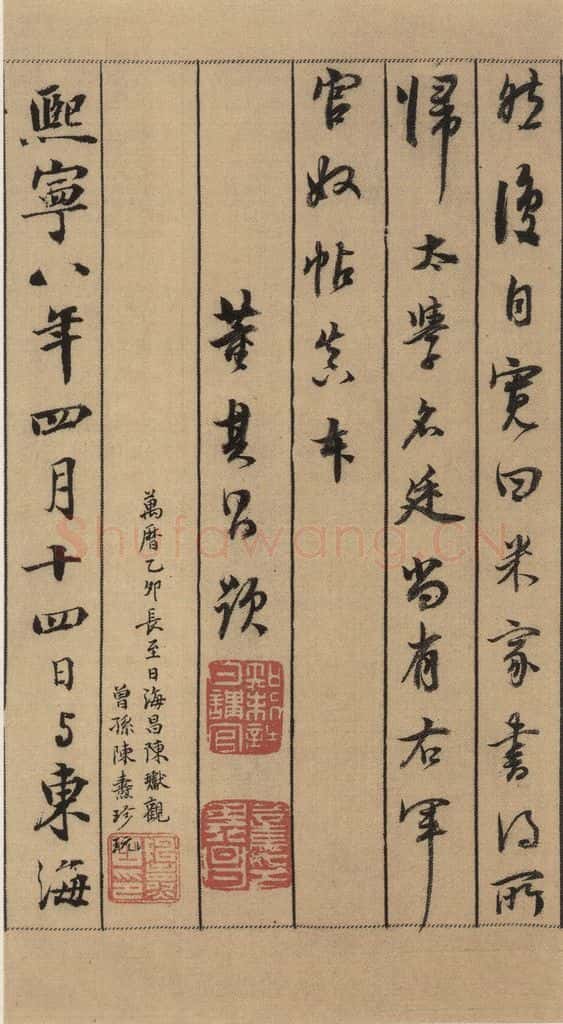 然後自寬曰米家書得所
歸太學名廷當有右軍
官奴帖真本
董其昌題
萬曆乙卯長至日海昌陳瓛觀
曾孫陳燾珍玩
熙寧八年四月十四日與東海
shufawang.CN